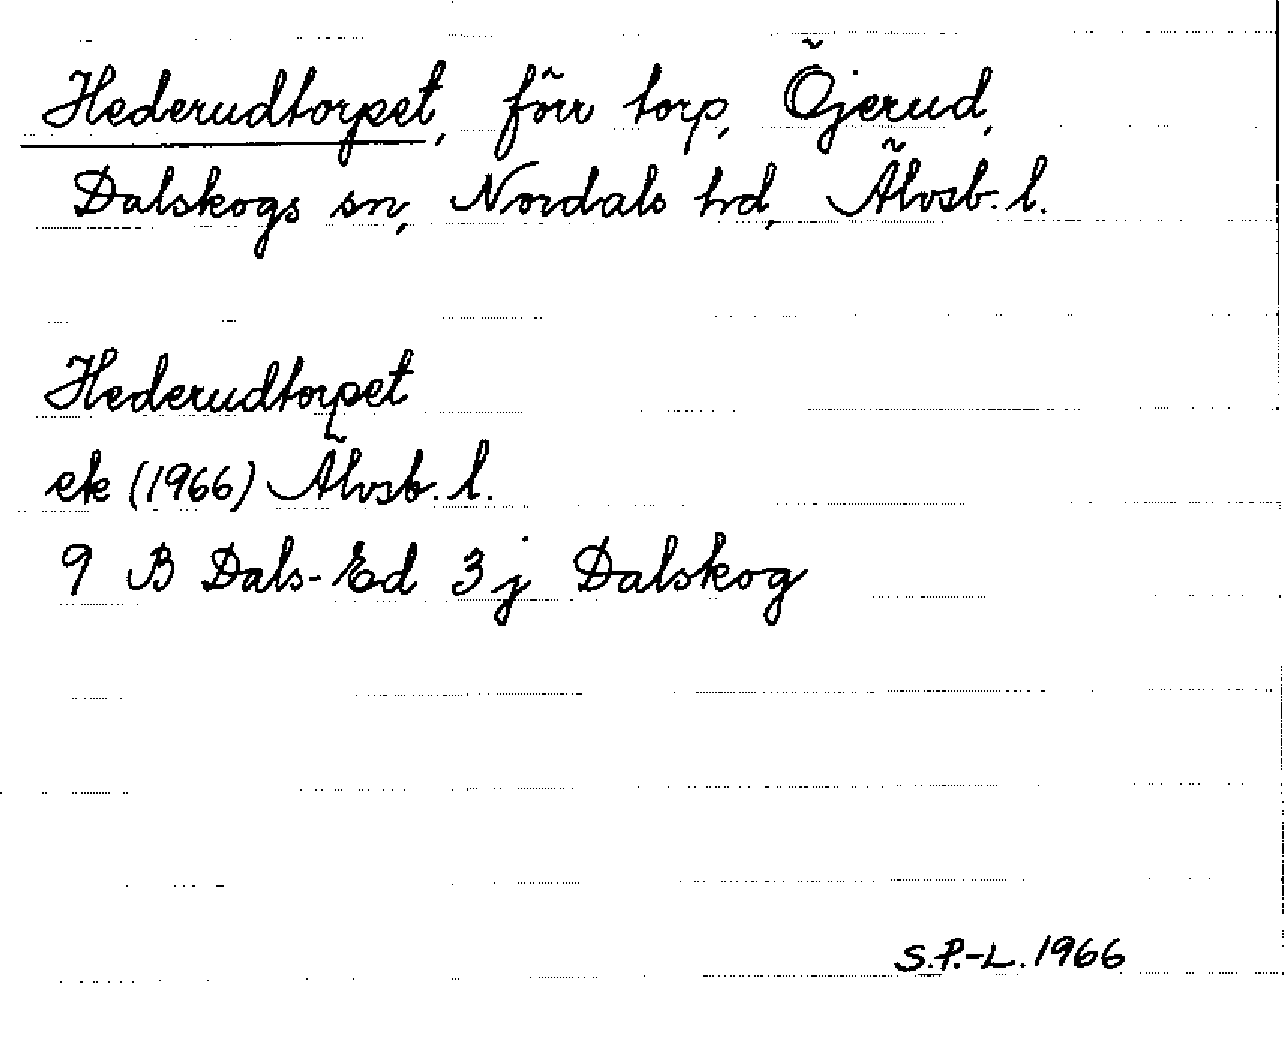 Hederudtorpet, förr torp, Öjerud,
Dalskogs sn, Nordals hd, Älvsb. l.
Hederudtorpet
ek (1966) Älvsb. l.
9 B Dals-Ed 3 j Dalskog
S.P.-L. 1966